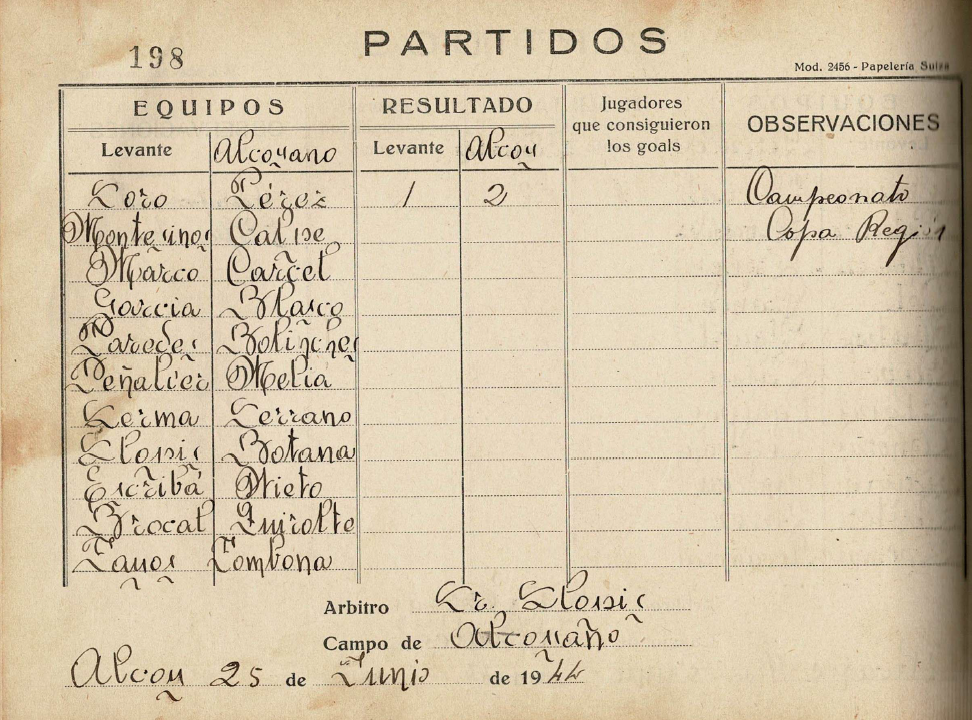 198
PARTIDOS
Mod. 2456 - Papelería Suiza
EQUIPOS RESULTADO Jugadores que consiguieron los goals OBSERVACIONES
Levante Alcoyano Levante Alcoy
Loro Pérez 1 2 Campeonato
Montesinos Calpe Copa Región
Marco Carcel
Garcia Blasco
Paredes Boliches
Peñalver Melia
Lerma Serrano
Botana
Escribá Nieto
Brocal Quirolte
Tombona
Arbitro Sr.
Campo de Alcoyano
Alcoy 25 de Junio de 1944